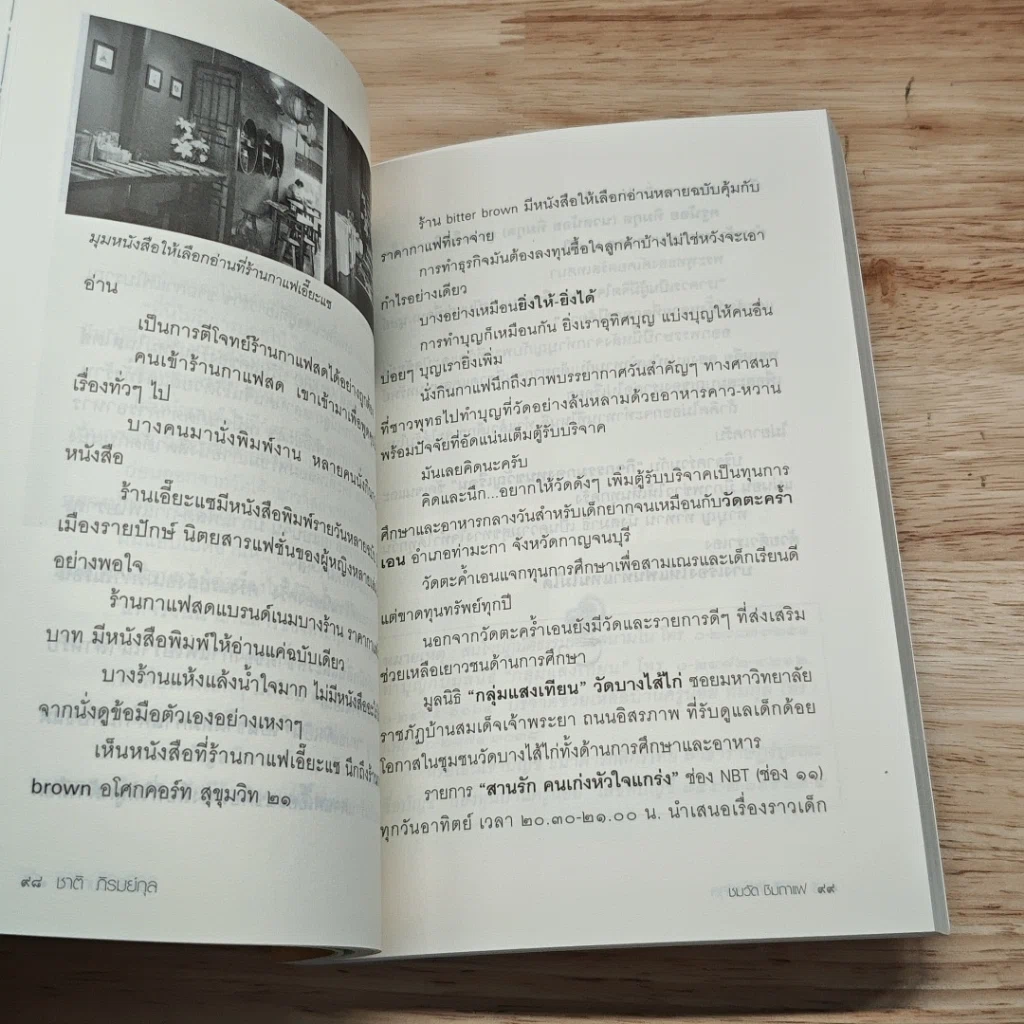 มุมหนังสือให้เลือกอ่านที่ร้านกาแฟเอี๊ยะแซ
อ่าน
เป็นการตีโจทย์ร้านกาแฟสดได้อย่าง
คนเข้าร้านกาแฟสด เขาเข้ามาเพื่อ
เรื่องทั่วๆ ไป
บางคนมานั่งพิมพ์งาน หลายคนนั่ง
หนังสือ
ร้านเอี๊ยะแซมีหนังสือพิมพ์รายวันหลาย
เมืองรายปักษ์ นิตยสารแฟชั่นของผู้หญิงหลาย
อย่างพอใจ
ร้านกาแฟสดแบรนด์เนมบางร้าน ราคา
บาท มีหนังสือพิมพ์ให้อ่านแค่ฉบับเดียว
บางร้านแห้งแล้งน้ำใจมาก ไม่มีหนังสือ
จากนั่งดูข้อมือตัวเองอย่างเหงาๆ
เห็นหนังสือที่ร้านกาแฟเอี๊ยะแซ นึกถึงร้าน
brown อโศกคอร์ท สุขุมวิท ๒๑
๙๘ ชาติ ภิรมย์กุล
ร้าน bitter brown มีหนังสือให้เลือกอ่านหลายฉบับคุ้มกับ
ราคากาแฟที่เราจ่าย
การทำธุรกิจมันต้องลงทุนซื้อใจลูกค้าบ้างไม่ใช่หวังจะเอา
กำไรอย่างเดียว
บางอย่างเหมือนยิ่งให้-ยิ่งได้
การทำบุญก็เหมือนกัน ยิ่งเราอุทิศบุญ แบ่งบุญให้คนอื่น
บ่อยๆ บุญเรายิ่งเพิ่ม
นั่งกินกาแฟนึกถึงภาพบรรยากาศวันสำคัญๆ ทางศาสนา
ที่ชาวพุทธไปทำบุญที่วัดอย่างล้นหลามด้วยอาหารคาว-หวาน
พร้อมปัจจัยที่อัดแน่นเต็มตู้รับบริจาค
มันเลยคิดนะครับ
คิดและนึก...อยากให้วัดดังๆ เพิ่มตู้รับบริจาคเป็นทุนการ
ศึกษาและอาหารกลางวันสำหรับเด็กยากจนเหมือนกับวัดตะคร้ำ
เอน อำเภอท่ามะกา จังหวัดกาญจนบุรี
วัดตะค้ำเอนแจกทุนการศึกษาเพื่อสามเณรและเด็กเรียนดี
แต่ขาดทุนทรัพย์ทุกปี
นอกจากวัดตะคร้ำเอนยังมีวัดและรายการดีๆ ที่ส่งเสริม
ช่วยเหลือเยาวชนด้านการศึกษา
มูลนิธิ “กลุ่มแสงเทียน” วัดบางไส้ไก่ ซอยมหาวิทยาลัย
ราชภัฏบ้านสมเด็จเจ้าพระยา ถนนอิสรภาพ ที่รับดูแลเด็กด้อย
โอกาสในชุมชนวัดบางไส้ไก่ทั้งด้านการศึกษาและอาหาร
รายการ “สานรัก คนเก่งหัวใจแกร่ง” ช่อง NBT (ช่อง ๑๑)
ทุกวันอาทิตย์ เวลา ๒๐.๓๐-๒๑.๐๐ น. นำเสนอเรื่องราวเด็ก
ชมวัด ชิมกาแฟ ๙๙